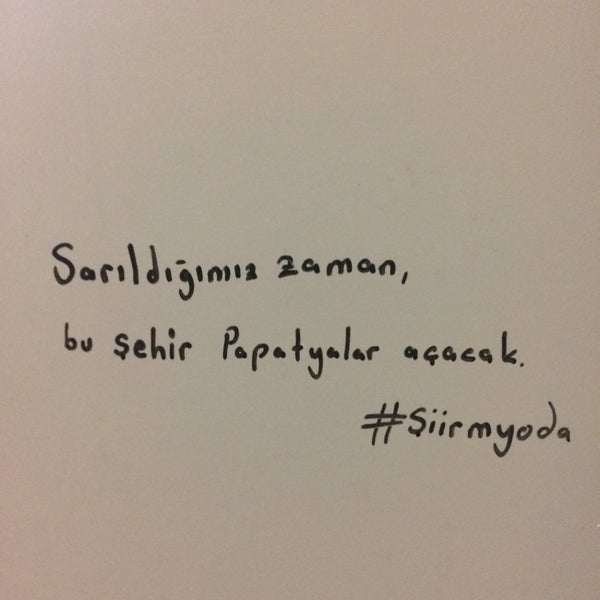 Sarıldığımız zaman,
bu şehir Papatyalar açacak.
#Şiirmyoda